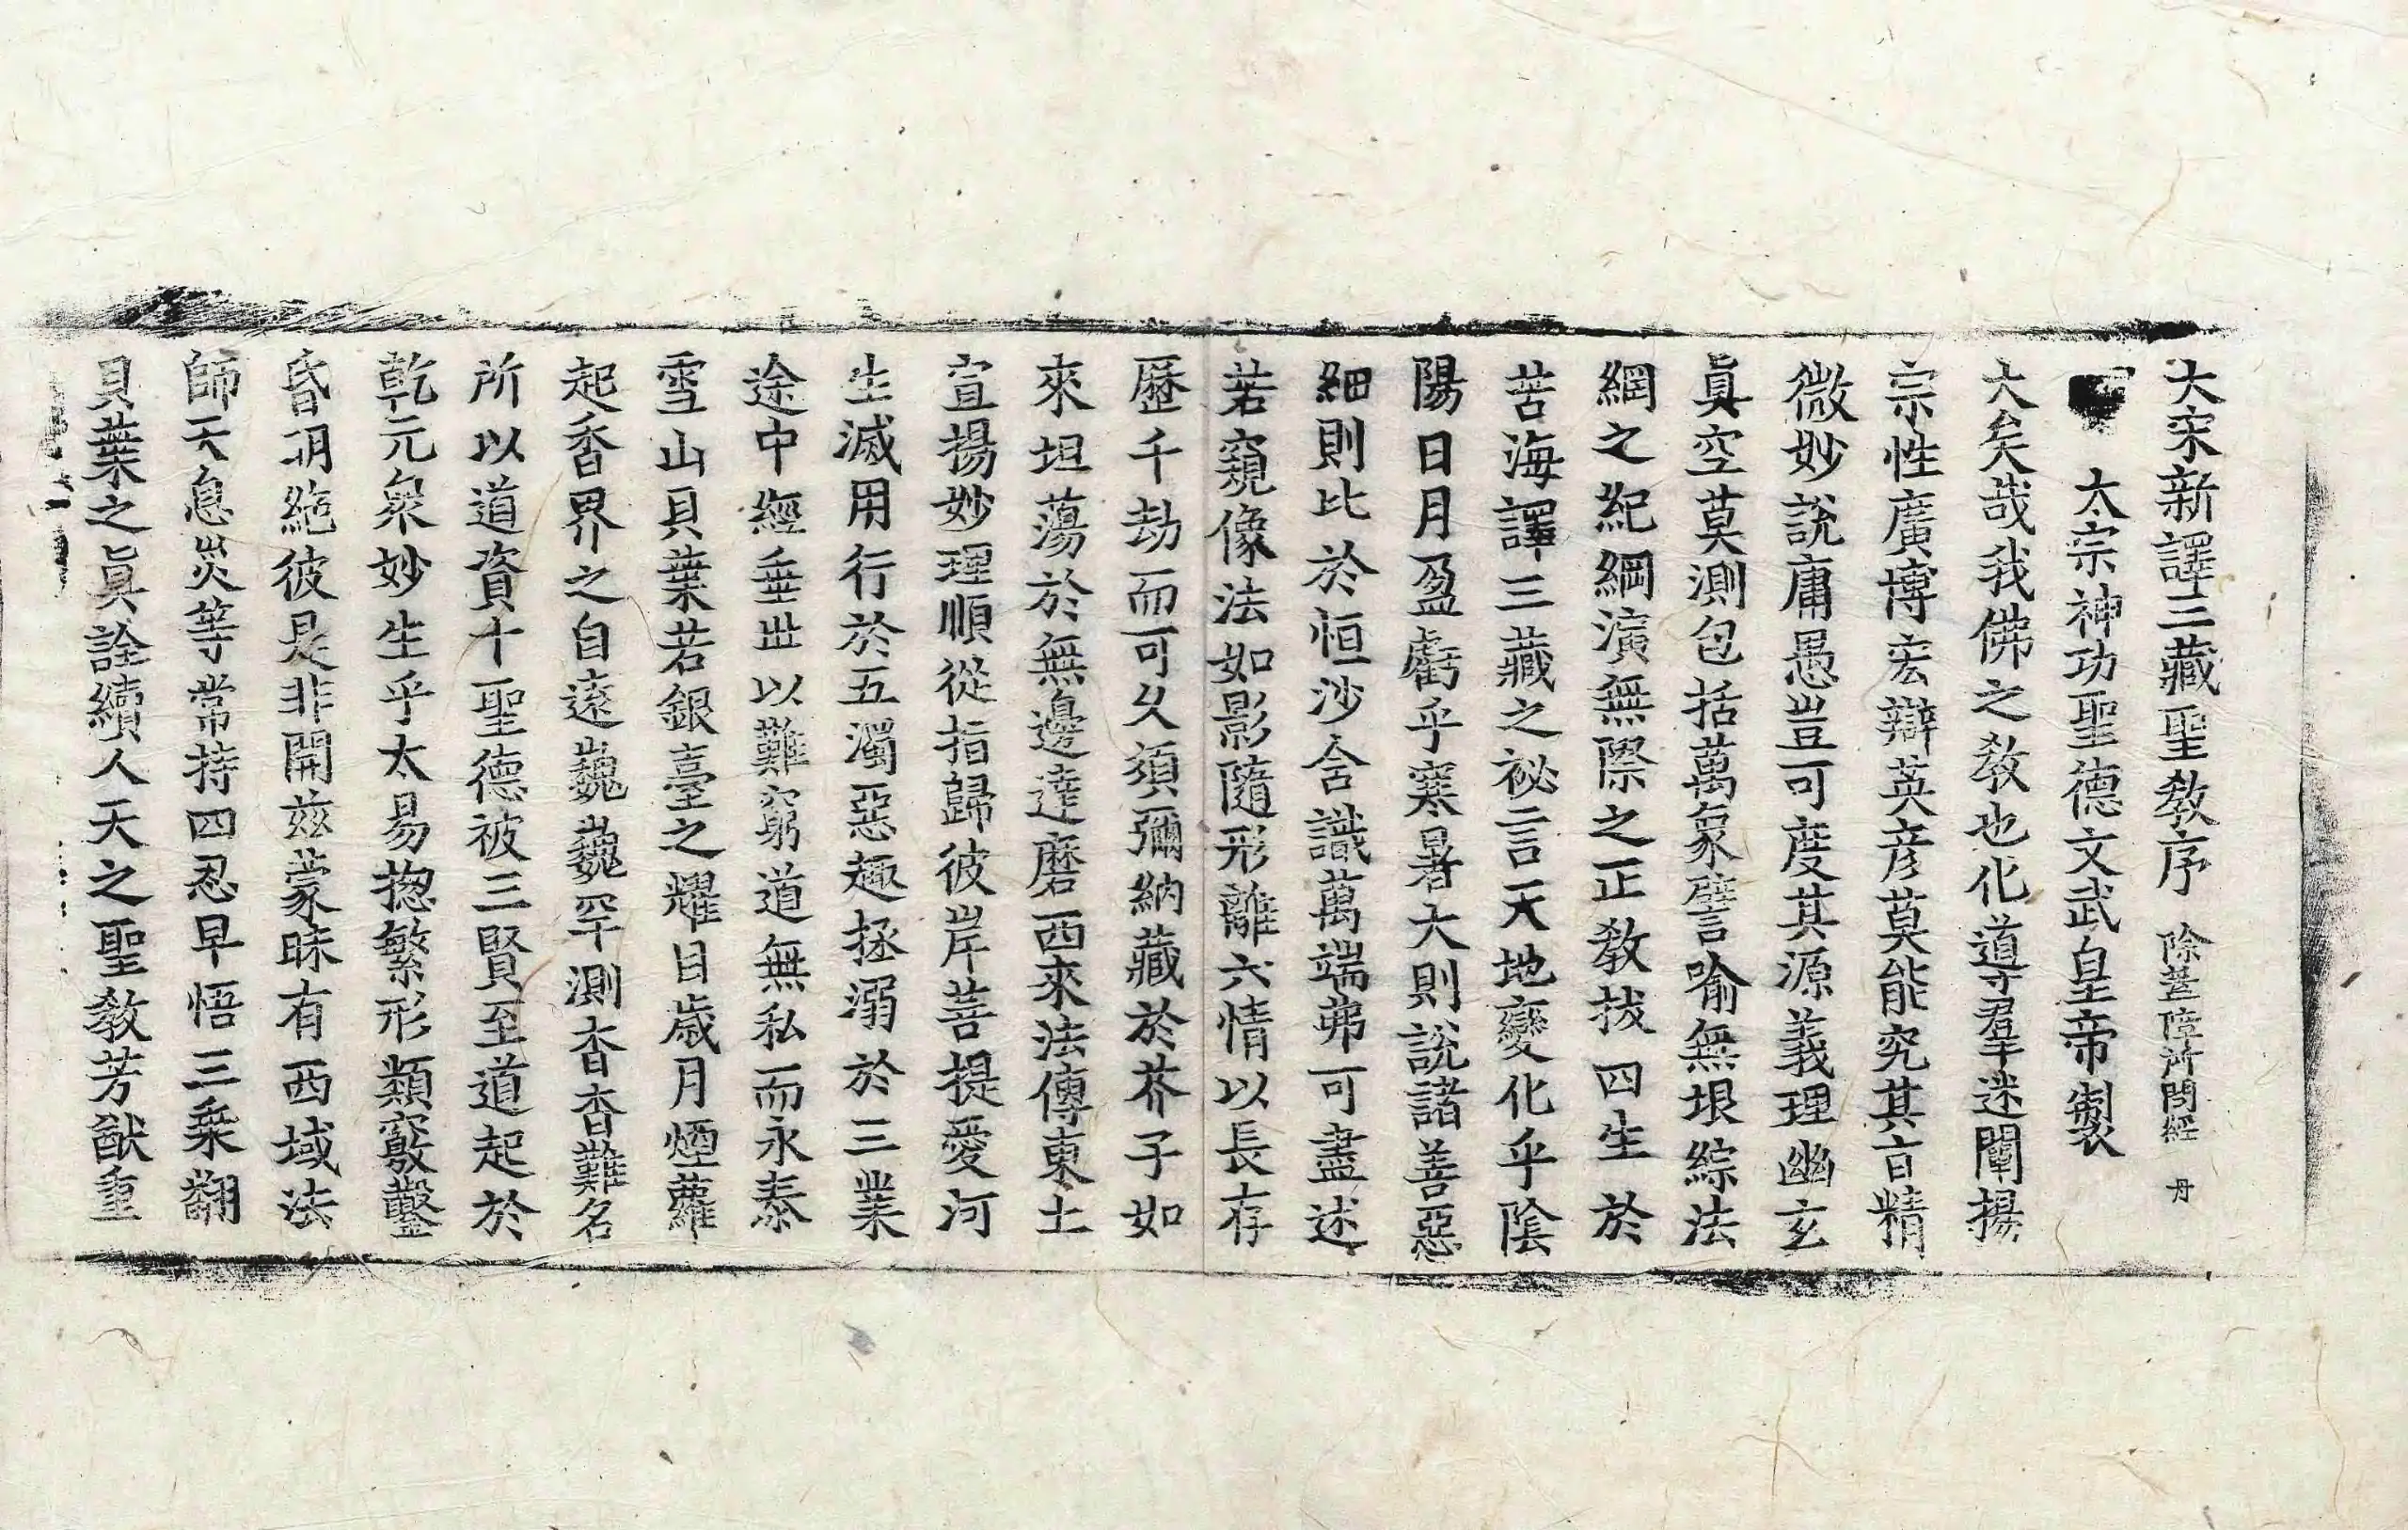 大宋新譯三藏聖教序 除蓋障所問經 丹
太宗神功聖德文武皇帝製
大矣哉我佛之教也化導群迷闡揚
宗性廣博宏辯英彦莫能究其㫖精
微妙說庸愚豈可度其源義理幽玄
眞空莫測包括萬象譬喻無垠綜法
網之紀綱演無際之正教拔四生於
苦海譯三藏之祕言天地變化乎陰
陽日月盈虧乎寒暑大則說諸善惡
細則比於恒沙含識萬端弗可盡述
若窺像法如影隨形離六情以長存
歷千劫而可久須彌納藏於芥子如
來坦蕩於無邊達磨西來法傳東土
宣揚妙理順從指歸彼岸菩提愛河
生滅用行於五濁惡趣拯溺於三業
途中經垂世以難窮道無私而永泰
雪山貝葉若銀臺之耀目歲月煙蘿
起香界之自遠巍巍罕測杳杳難名
所以道資十聖德被三賢至道起於
乾元衆妙生乎太易揔繁形類竅鑿
昏明絶彼是非開茲蒙昧有西域法
師天息災等常持四忍早悟三乘翻
貝葉之眞詮續人天之聖教芳猷重